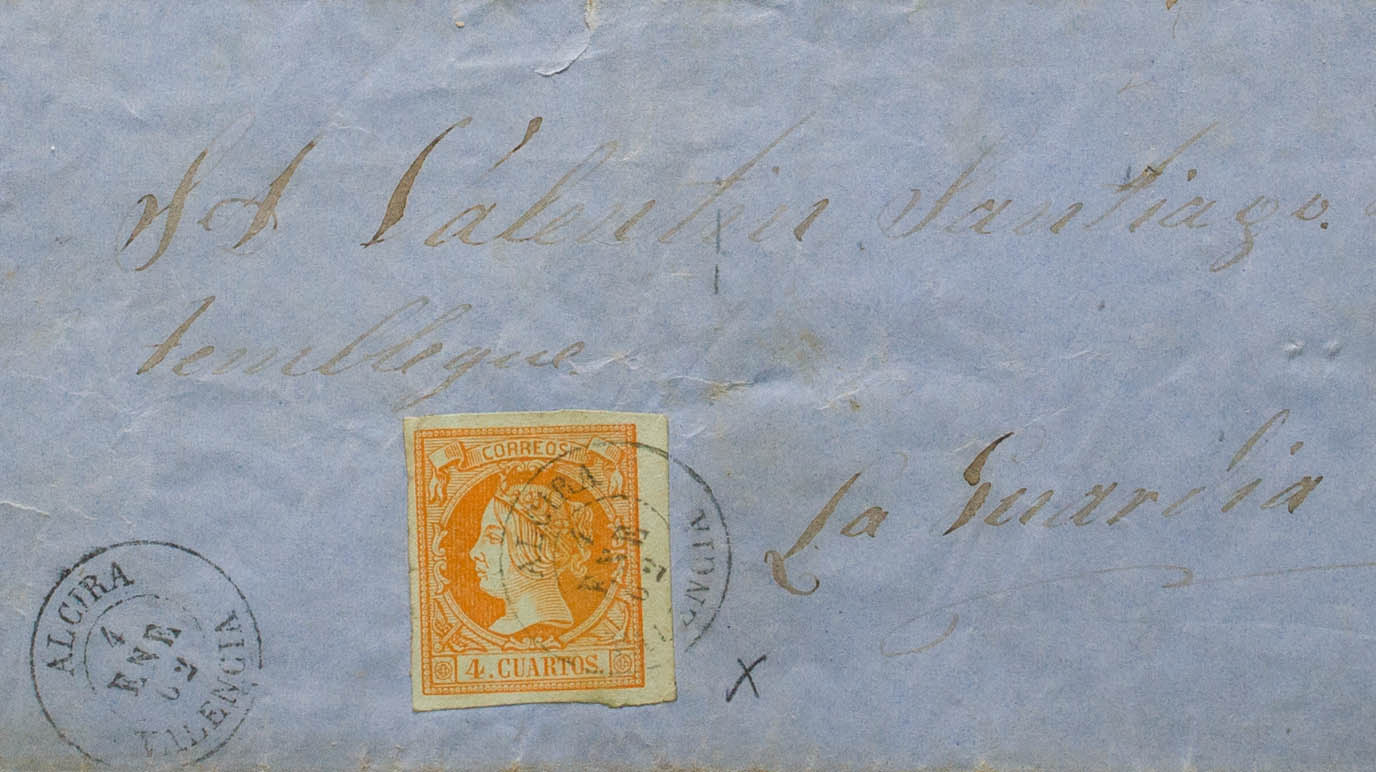 S S Valentin Santiago.
temblegue
La Guardia
CORREOS
4. CUARTOS.
ALCIRA
4
ENE
62
VALENCIA
ALCIRA
4
ENE
62
VALENCIA
x